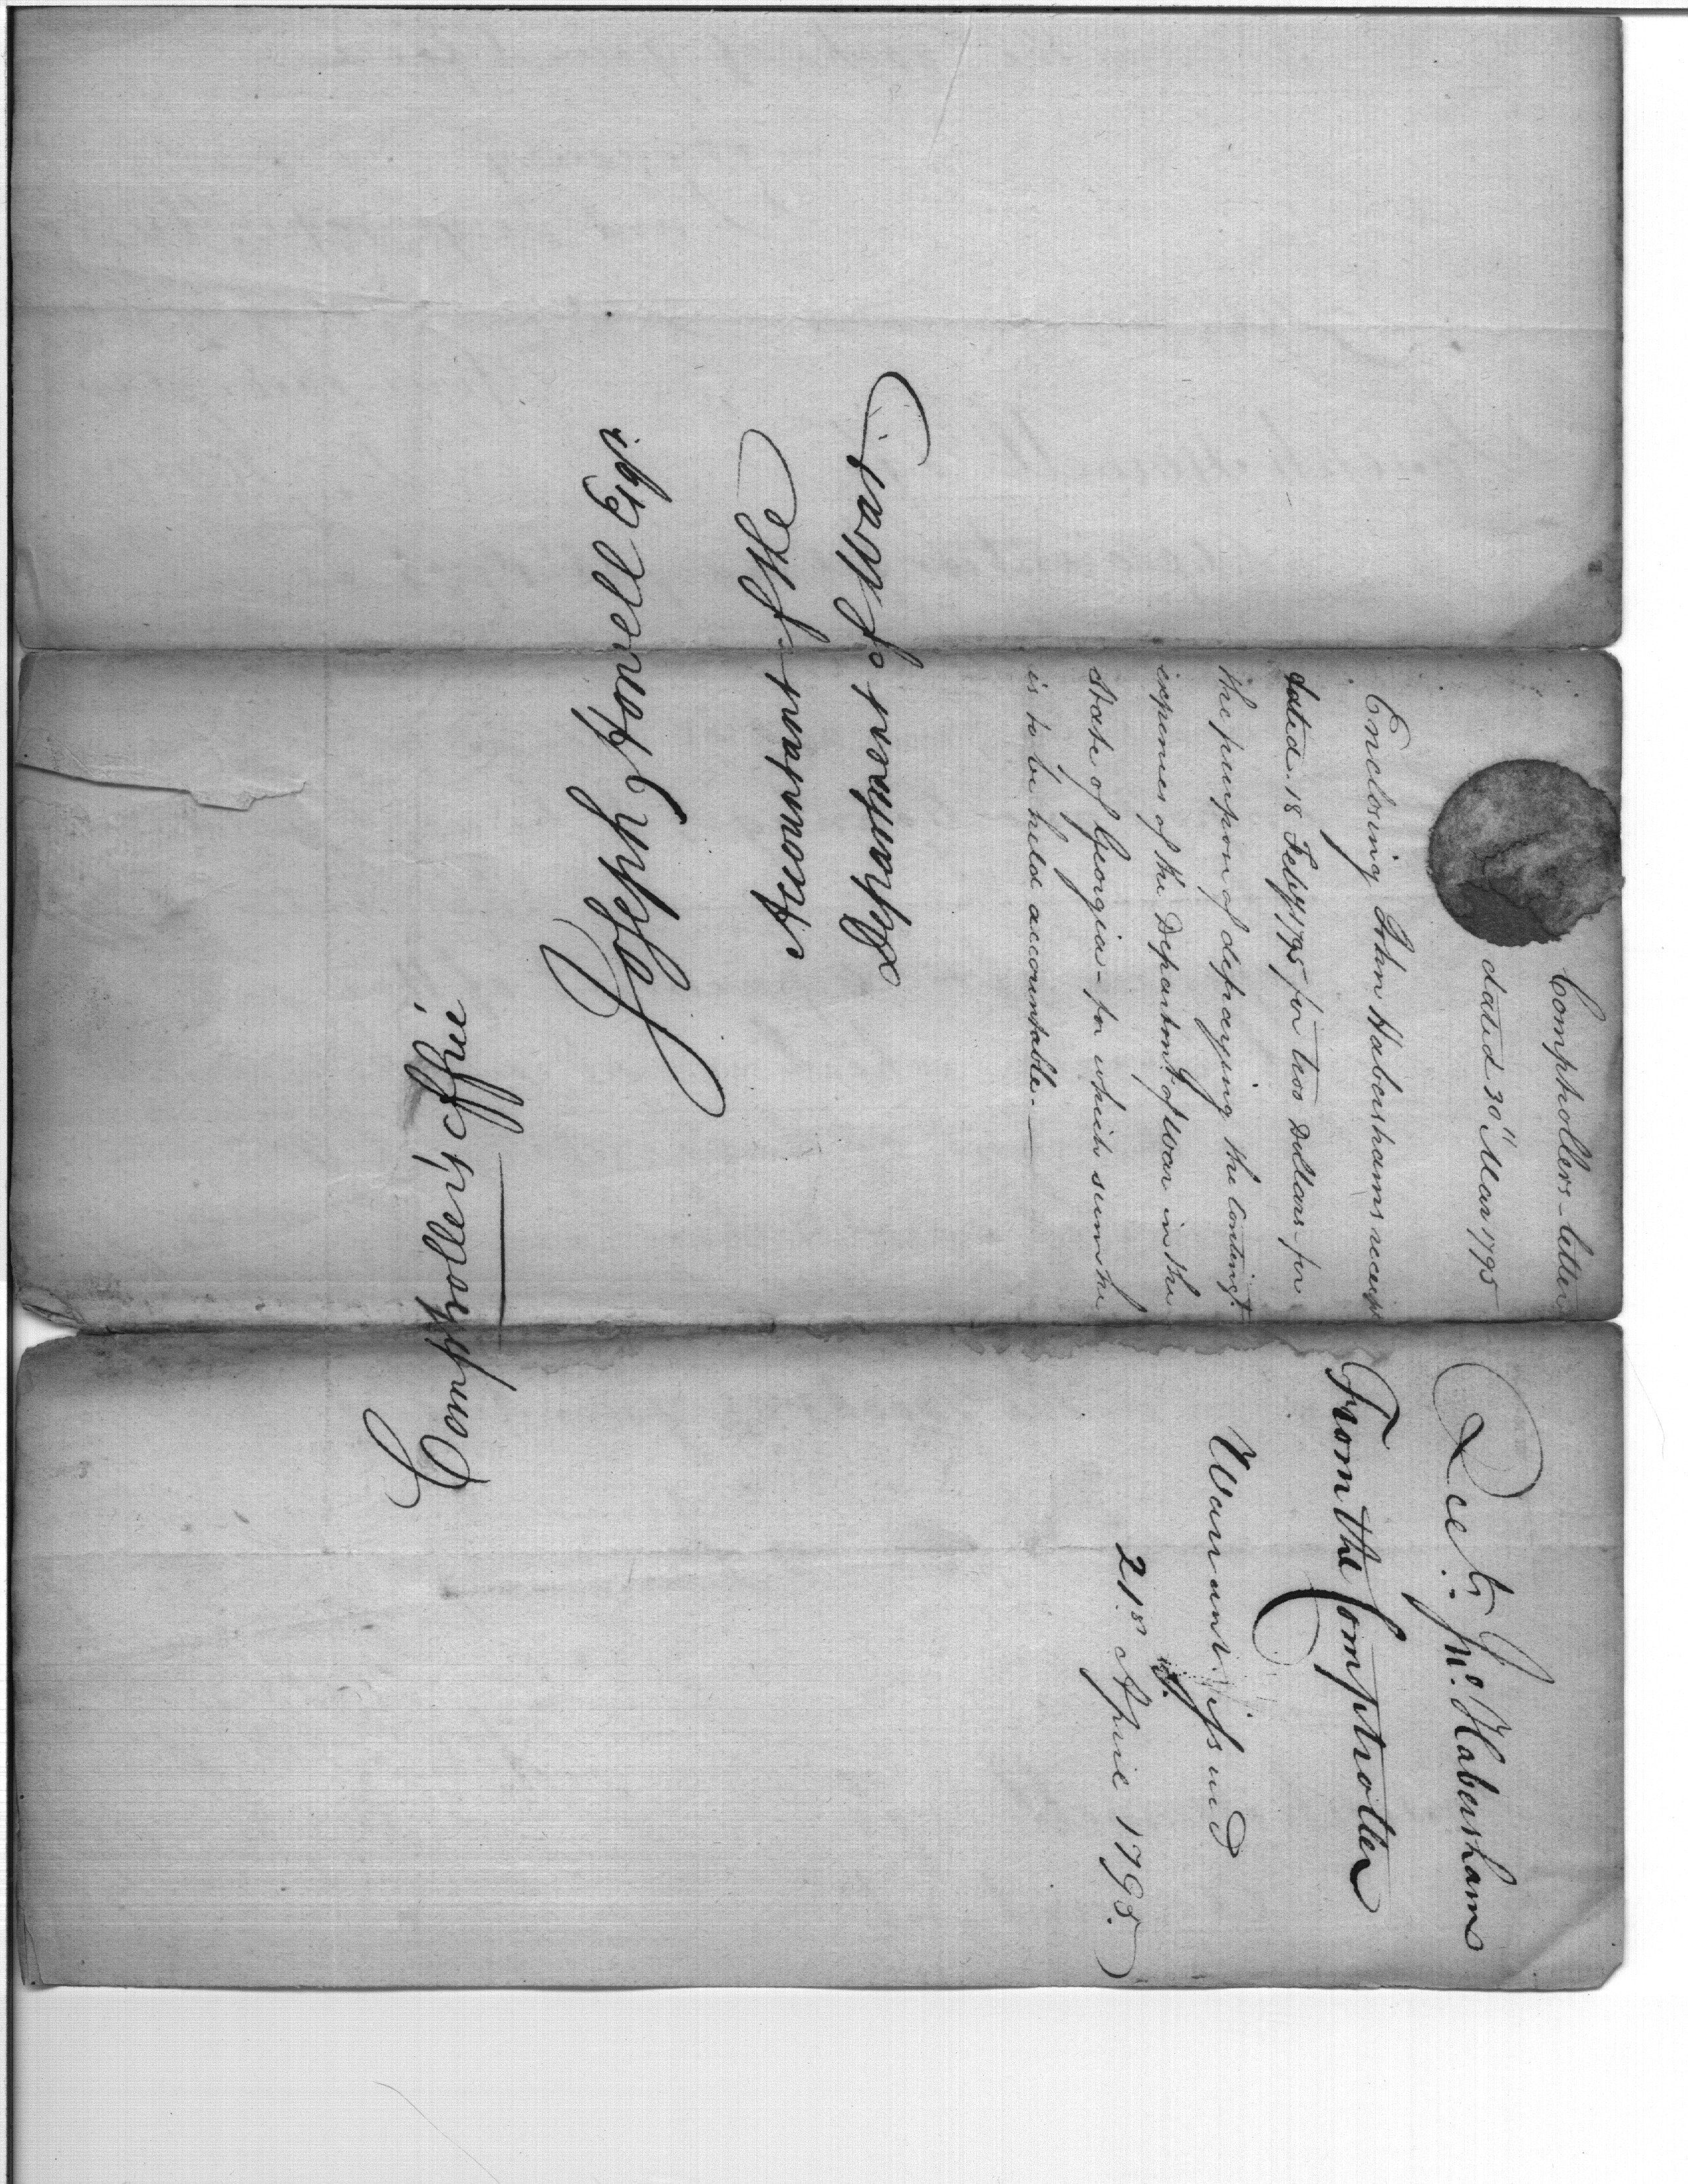 Comptrollers letter
dated 30 Mar 1795
Enclosing John Habershams receipt
dated 18 Feby 1795 for two Dollars for
the purpose of defraying the Conting.t
expenses of the Departm.t of War in the
State of Georgia - for which sum he
is to be held accountable. —
Joseph Howell Esq.r
Accountant of the
Department of War
Comptroller's Office
Jn.o Habersham
From the Comptroller
Warrant issued
21.st April 1795.